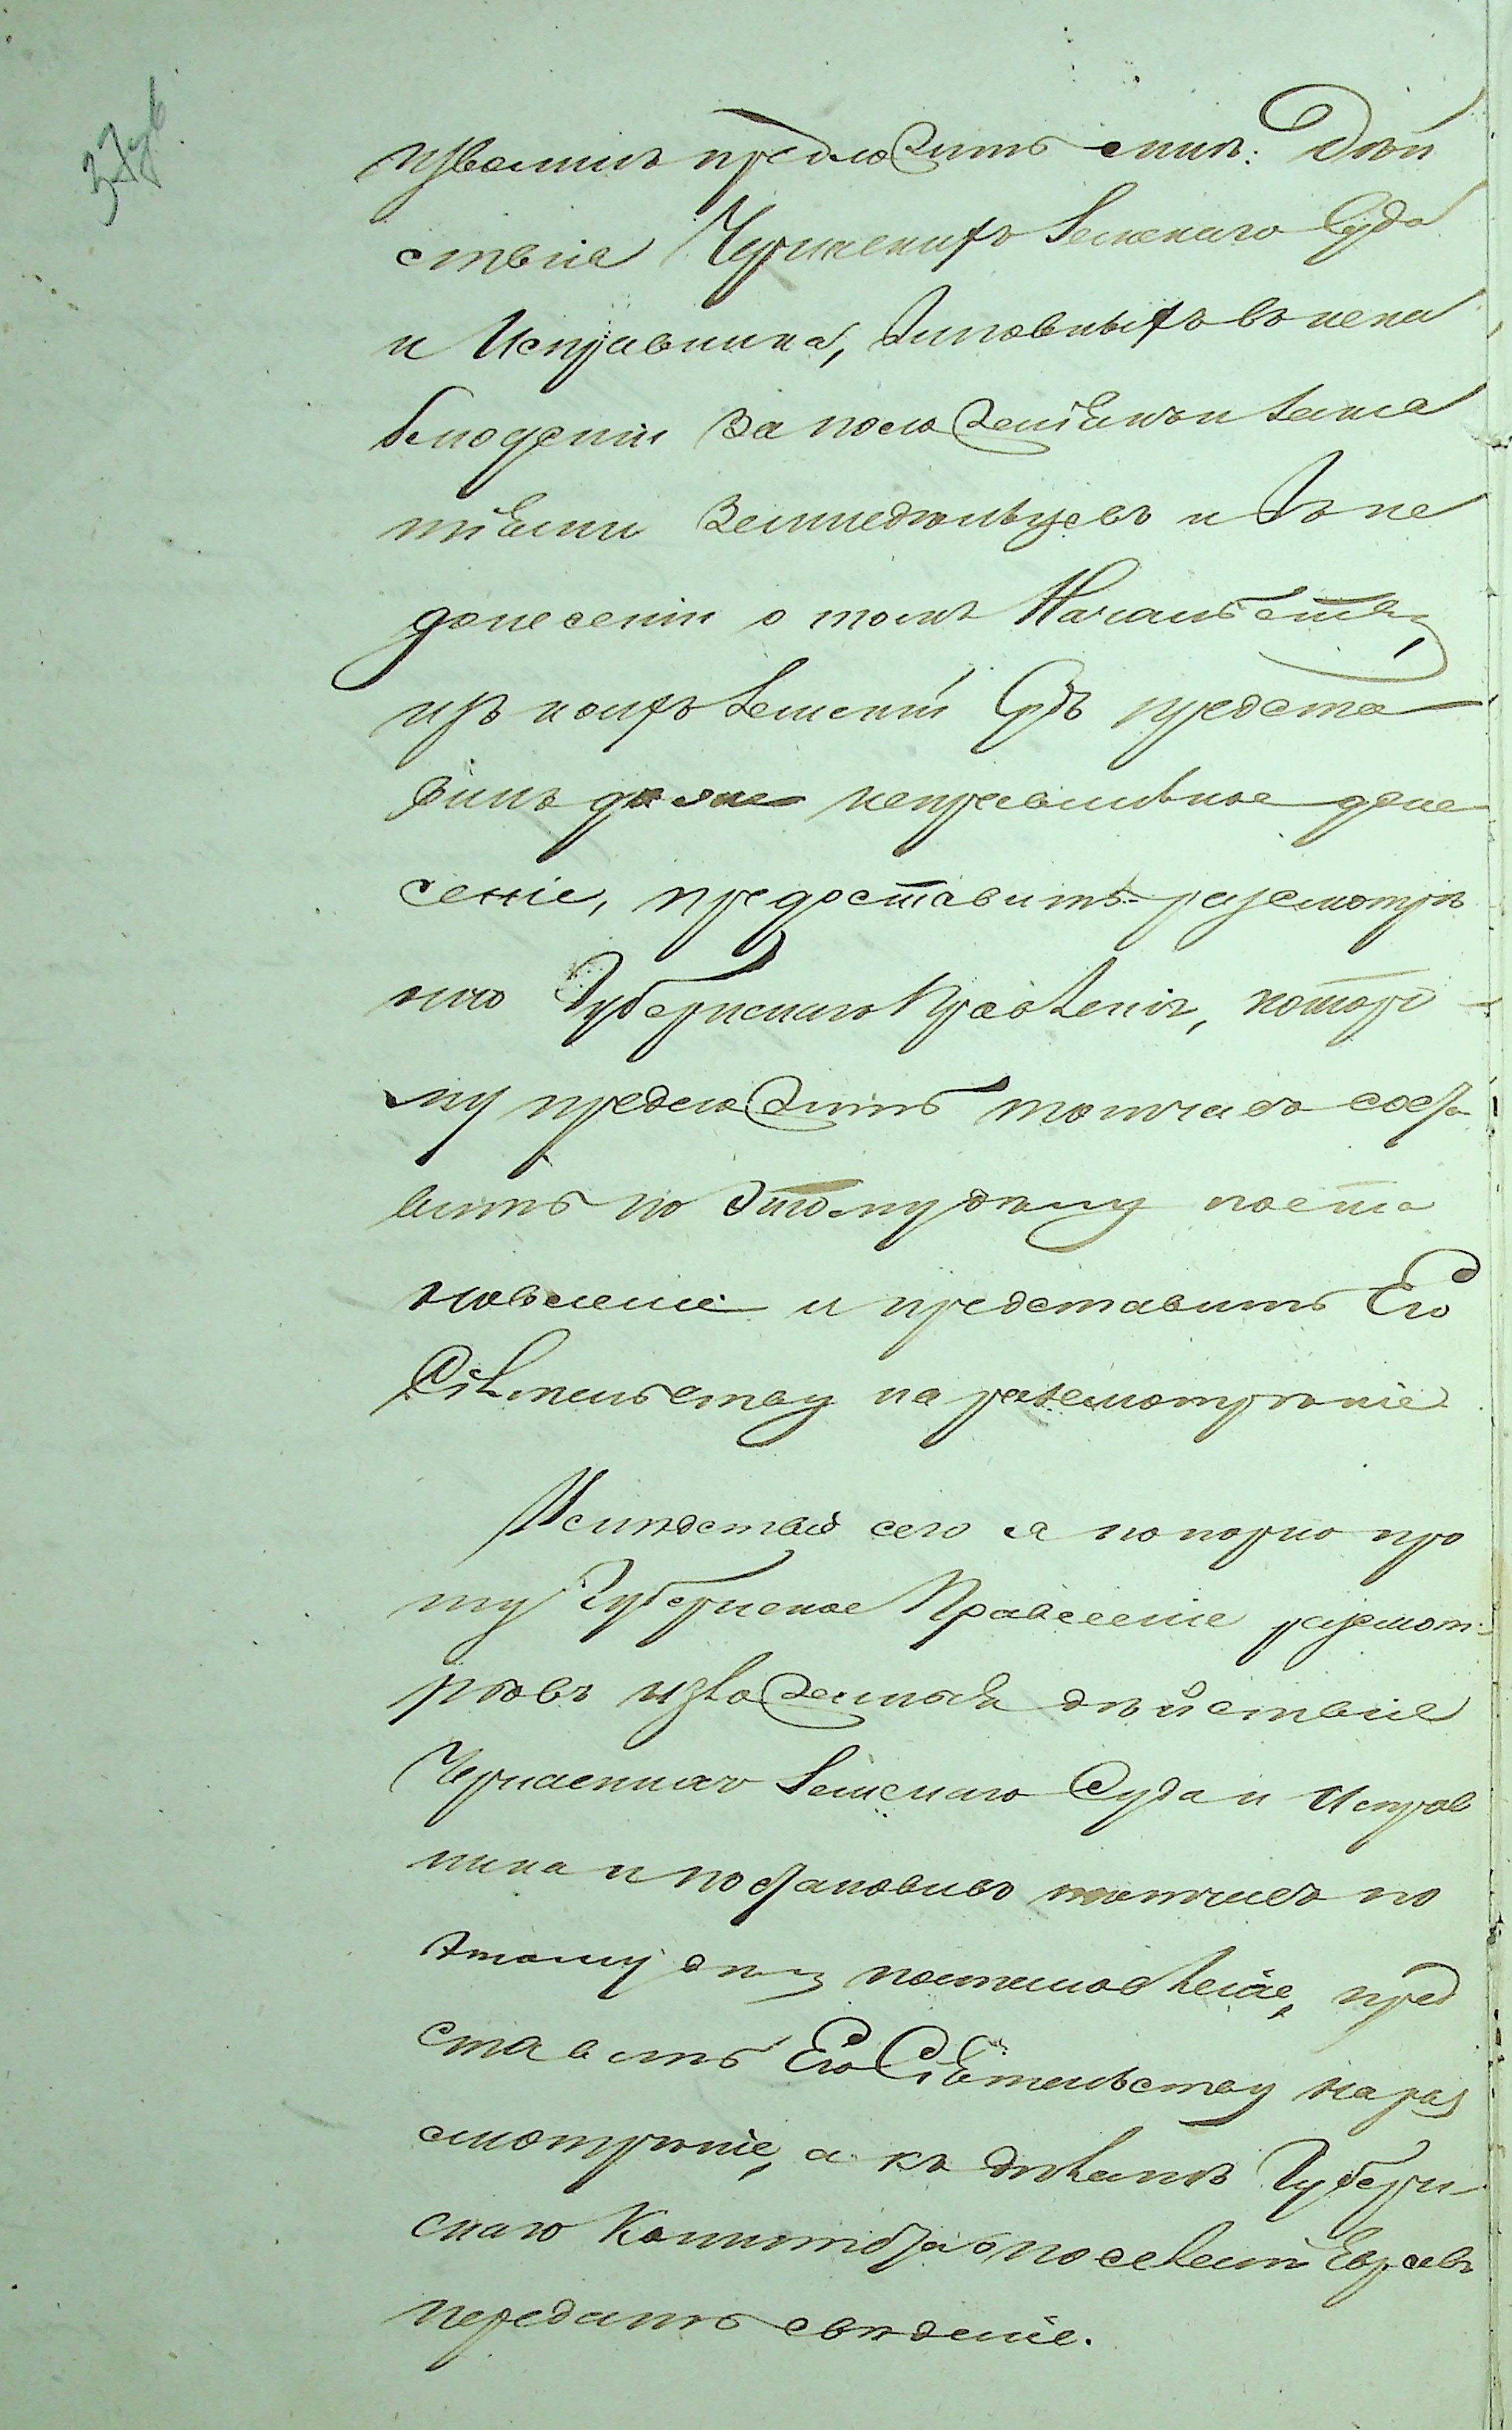 37 об
изволилъ предложить мнѣ: Дѣй
ствіе Черкаскихъ Земскаго Суда
и Исправника, виновныхъ въ нена
блюденіи за положеніемъ и заня
тіями земледѣльцевъ и въ не
донесеніи о томъ Начальству,
изъ коихъ Земскій Судъ предста
вилъ даже неправильное доне
сеніе, предоставить разсмотрѣ
нію Губернскаго Правленія, которо
му предложить тотчасъ соста
вить по этому дѣлу поста
новленіе и представить Его
Сіятельству на разсмотрѣніе
Вслѣдствіе сего я покорно про
шу Губернское Правленіе разсмот
рѣвъ изложенныя дѣйствіе
Черкаскаго Земскаго Суда и Исправ
ника и постановивъ тотчасъ по
этому дѣлу постановленіе, пред
ставить Его Сіятельству на раз
смотрѣніе, а къ дѣламъ Губерн
скаго Комитета о поселеніи Евреевъ
передать свѣденіе.